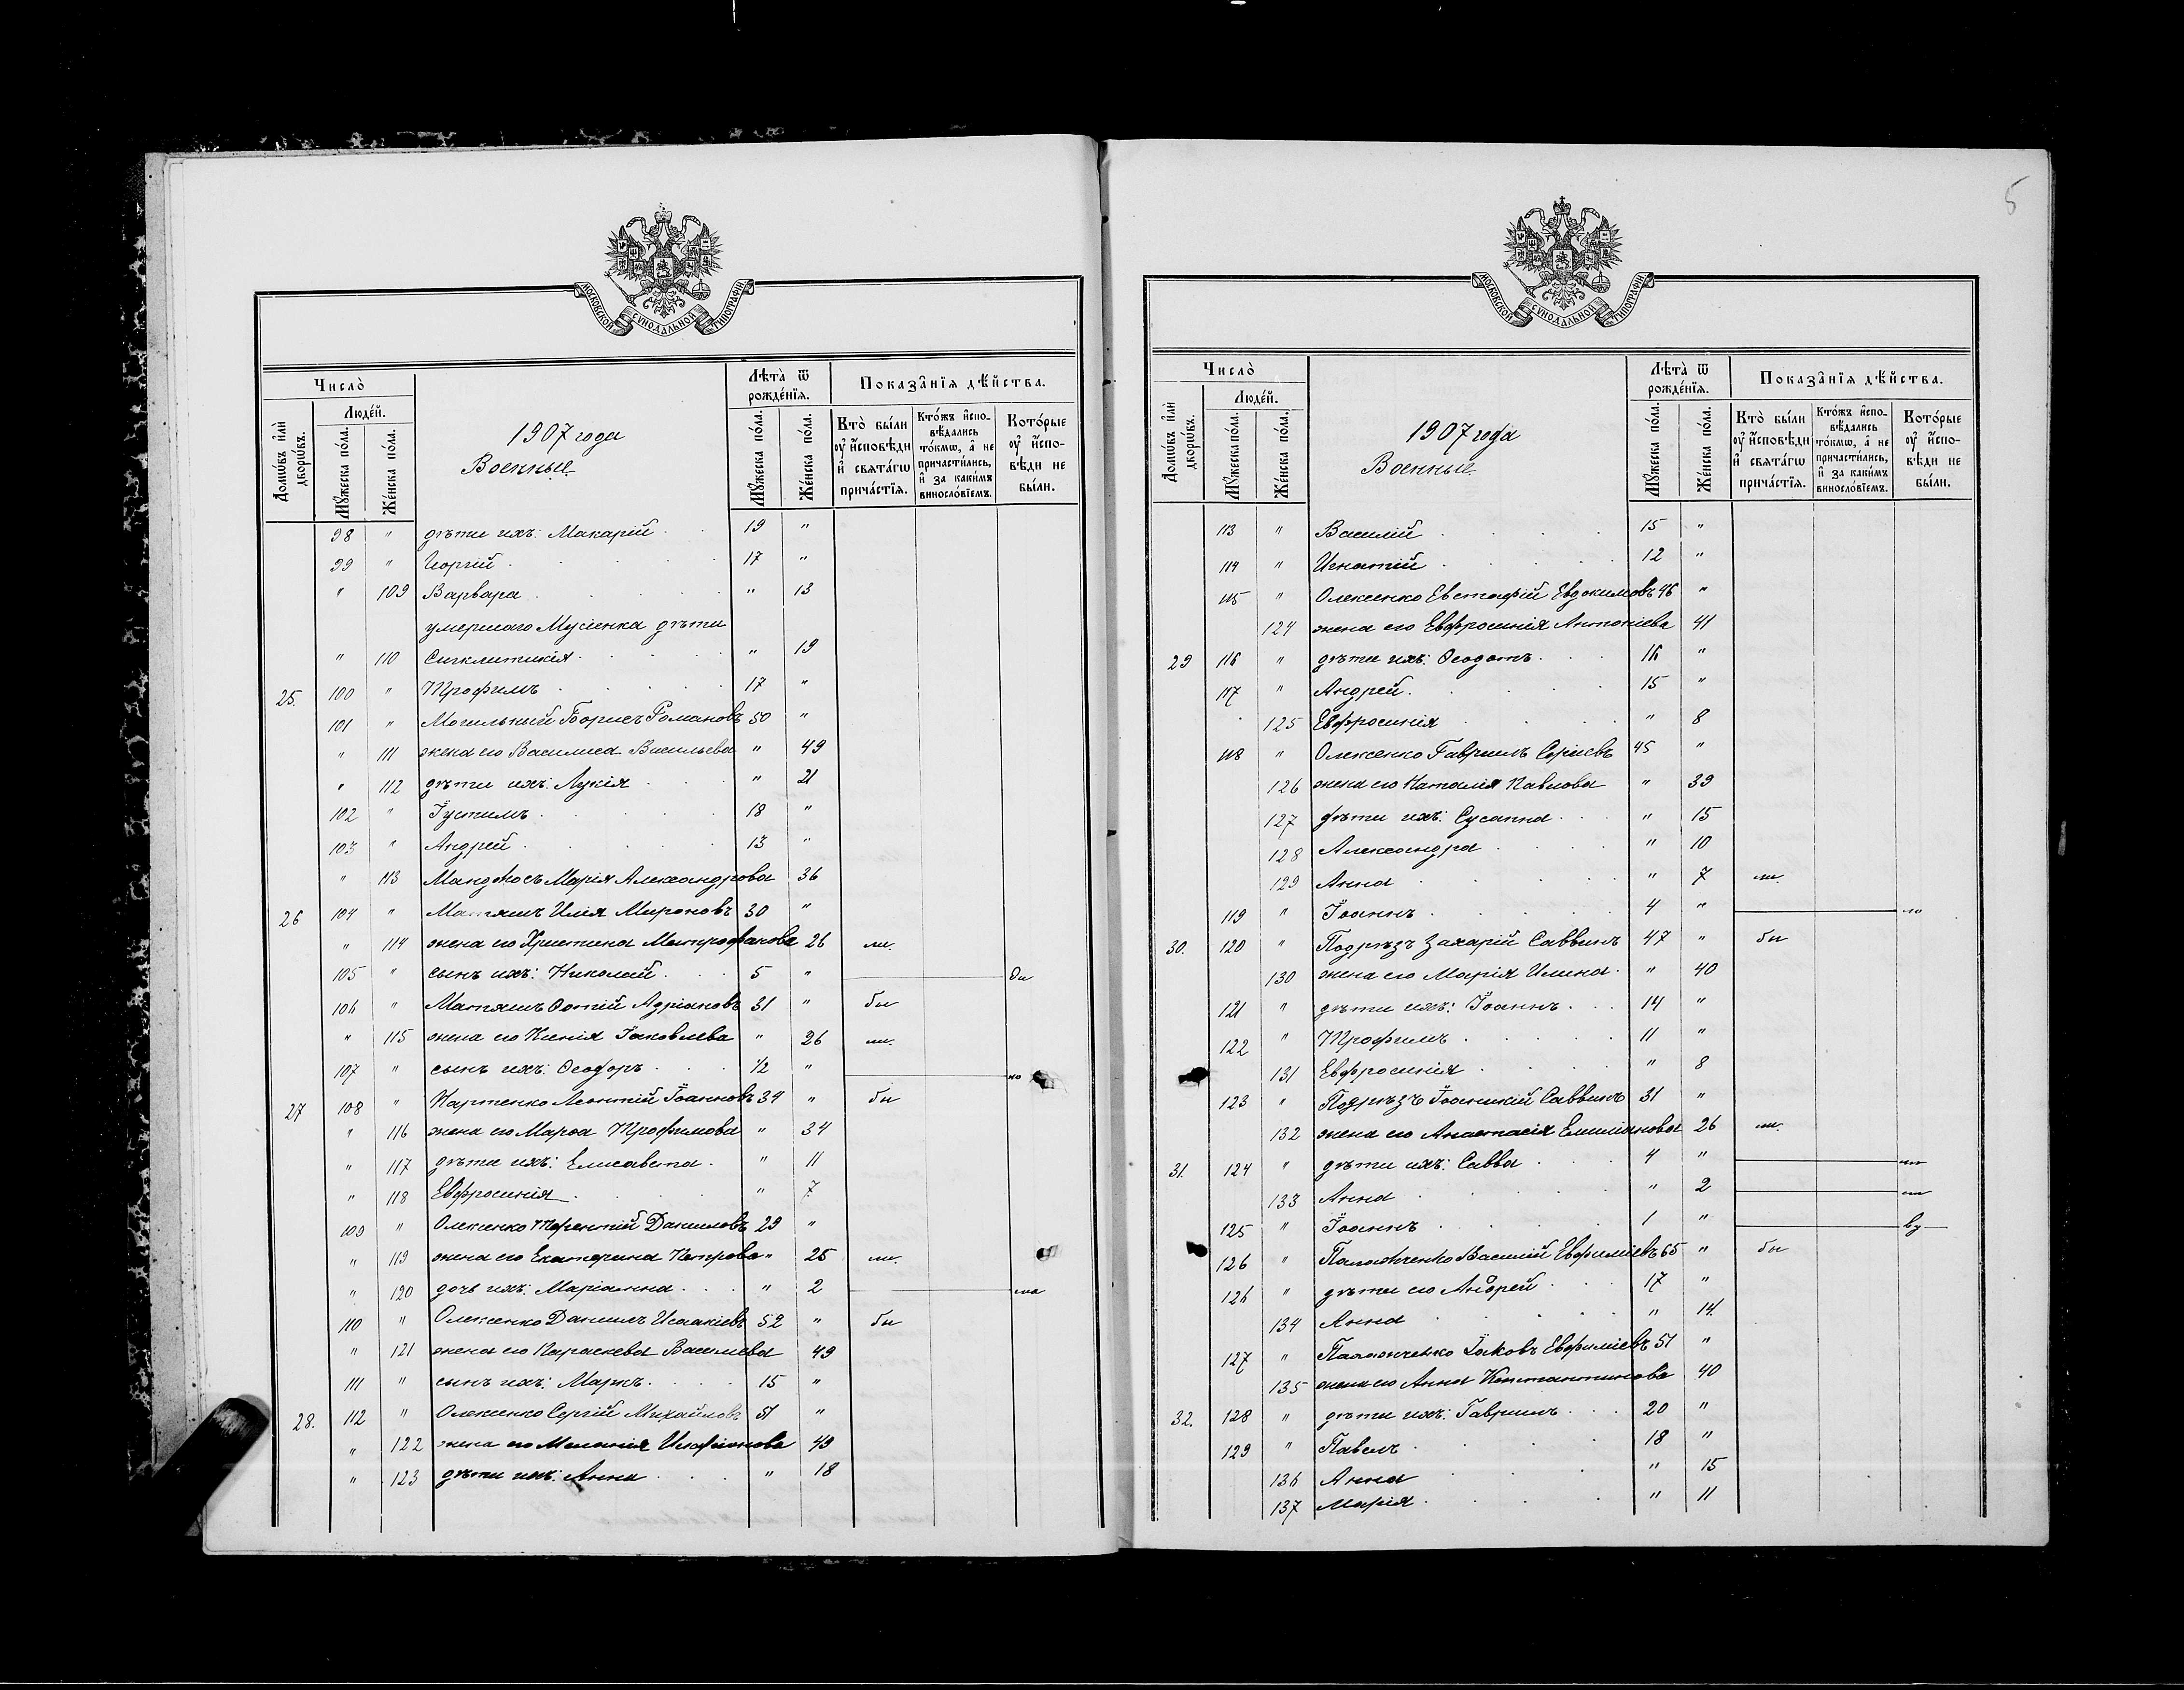 5
МОСКОВСКОЙ СѴНОДАЛЬНОЙ ТИПОГРАФІИ
Число̀
Лѣта̀ ѿ рожде́нїѧ.
Показа̑нїѧ дѣ́йства.
Домѡ́въ и҆лѝ дворѡ́въ.
Люде́й.
Мꙋ́жеска по́ла.
Же́нска по́ла.
1907 года
Военные
Мꙋ́жеска по́ла.
Же́нска по́ла.
Кто̀ бы́ли ᲂу҆ и҆́сповѣди и҆ свѧта́гѡ прича́стїѧ.
Кто́жъ и҆спо- вѣ́дались то́кмѡ, а҆ не причасти́лись, и҆ за каки́мъ винословїемъ.
Кото́рые ᲂу҆ и҆́спо- вѣди не бы́ли.
98 " дѣти ихъ: Макарій 19 "
99 " Георгій 17 "
" 109 Варвара " 13
умершаго Мусіенка дѣти
" 110 Сигклитикія " 19
25. 100 " Трофимъ 17 "
101 " Могильный Борисъ Романовъ 50 "
" 111 жена его Василиса Васильева " 49
" 112 дѣти ихъ: Лукія " 21
102 " Іустинъ 18 "
103 " Андрей 13 "
" 113 Манджосъ Марія Александрова 36
26 104 " Матяшъ Илія Мироновъ 30 "
" 114 жена его Христина Митрофанова 26 ли.
105 " сынъ ихъ: Николай 5 " ди
106 " Матяшъ Фотій Адріановъ 31 " бы
" 115 жена его Ксенія Іаковлева " 26 ли.
107 " сынъ ихъ: Ѳеодоръ 1/2 " но
27 108 " Карпенко Леонтій Іоанновъ 34 " бы
" 116 жена его Марѳа Трофимова " 34
" 117 дѣти ихъ: Елисавета " 11
" 118 Евфросинія " 7
109 " Олексенко Терентій Даниловъ 29 "
" 119 жена его Екатерина Петрова " 25 ли.
" 120 дочь ихъ: Маріанна " 2 ма
110 " Олексенко Даніилъ Исаакіевъ 52 " бы
" 121 жена его Параскева Василіева 49
111 " сынъ ихъ: Маркъ 15 "
28. 112 " Олексенко Сергій Михайловъ 51 "
" 122 жена его Меланія 49
" 123 дѣти ихъ: Анна " 18
МОСКОВСКОЙ СѴНОДАЛЬНОЙ ТИПОГРАФІИ
Число̀
Лѣта̀ ѿ рожде́нїѧ.
Показа̑нїѧ дѣ́йства.
Домѡ́въ и҆лѝ дворѡ́въ.
Люде́й.
Мꙋ́жеска по́ла.
Же́нска по́ла.
1907 года
Военные
Мꙋ́жеска по́ла.
Же́нска по́ла.
Кто̀ бы́ли ᲂу҆ и҆́сповѣди и҆ свѧта́гѡ прича́стїѧ.
Кто́жъ и҆спо- вѣ́дались то́кмѡ, а҆ не причасти́лись, и҆ за каки́мъ винословїемъ.
Кото́рые ᲂу҆ и҆́спо- вѣди не бы́ли.
113 " Василій 15 "
114 " Игнатій 12 "
115 " Олексенко Евстафій Евдокимовъ 46 "
124 жена его Евфросинія Антоніева 41
29 116 " дѣти ихъ: Ѳеодотъ 16 "
117 " Андрей 15 "
125 Евфросинія " 8
118 " Олексенко Гавріилъ Сергіевъ 45 "
126 жена его Наталія Павлова " 39
127 дѣти ихъ: Сусанна " 15
128 Александра " 10
129 Анна " 7 ли.
119 " Іоаннъ 4 " ло
30. 120 " Подрѣзъ Захарій Саввинъ 47 " бы
130 жена его Марія Илина " 40
121 " дѣти ихъ: Іоаннъ 14 "
122 " Трофимъ 11 "
131 Евфросинія " 8
123 " Подрѣзъ Іоанникій Саввинъ 31 "
132 жена его Анастасія Емиліанова 26 ли.
31. 124 " дѣти ихъ: Савва 4 "
133 Анна " 2
125 " Іоаннъ 1 "
126 " Василій Евфиміевъ 65 " бы
126 " дѣти его Андрей 17 "
134 Анна " 14.
127 " Іаковъ Евфиміевъ 51 "
135 жена его Анна Константинова 40
32. 128 " дѣти ихъ: Гавріилъ 20 "
129 " Павелъ 18 "
136 Анна " 15
137 Марія " 11